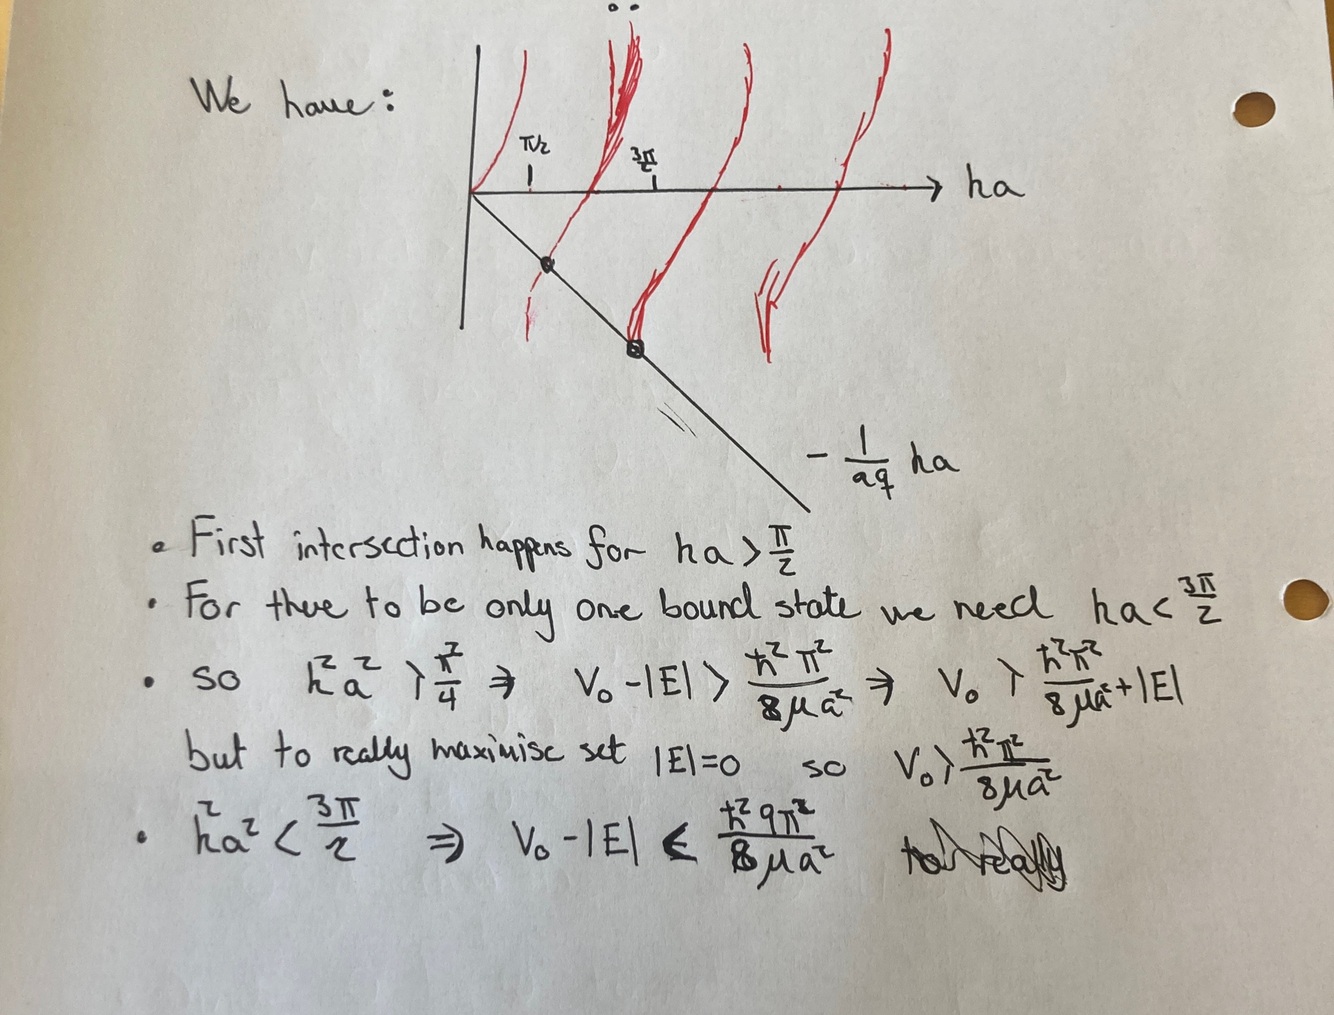 We have:
π/2
3π/2
ka
- 1/aq ka
• First intersection happens for ka > π/2
• For there to be only one bound state we need ka < 3π/2
• so k²a² > π²/4 ⇒ V₀ - |E| > ħ²π²/8μa² ⇒ V₀ > ħ²π²/8μa² + |E|
but to really maximise set |E|=0 so V₀ > ħ²π²/8μa²
• k²a² < 3π/2 ⇒ V₀ - |E| < ħ²9π²/8μa²